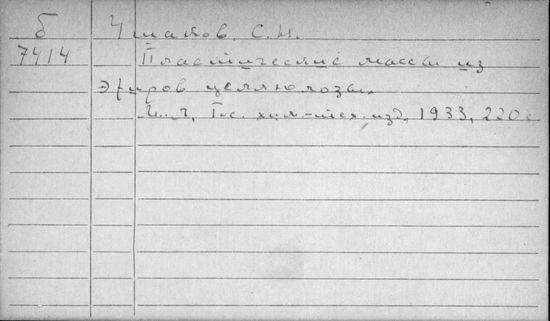 б Ушаков, С.Н.
7414 Пластические массы из
эфиров целлюлозы.
М.-Л, Гос. хим-тех. изд, 1933, 220 с